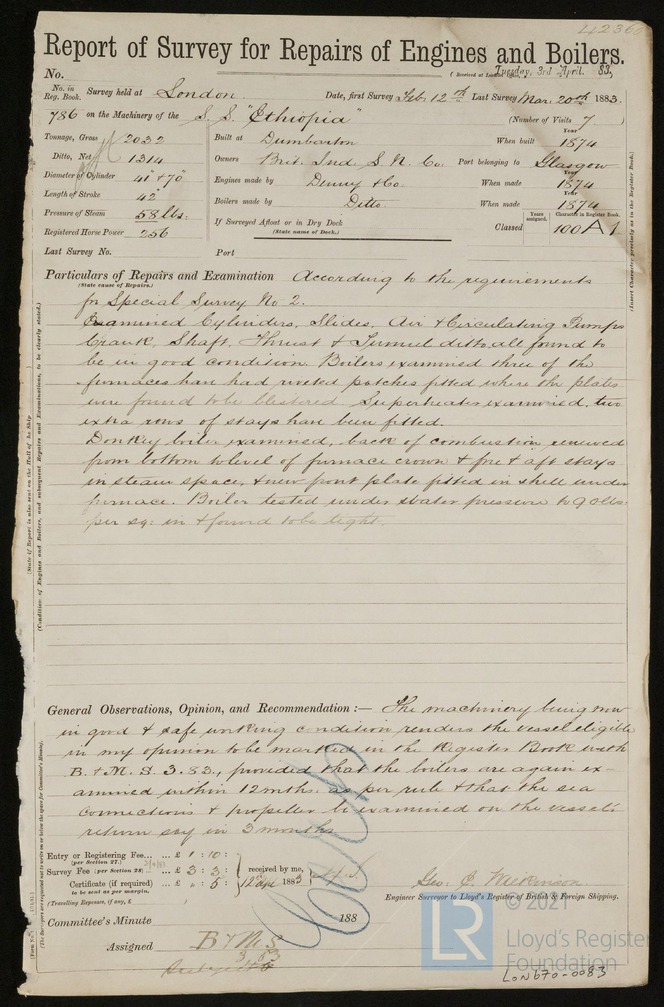 42360
Report of Survey for Repairs of Engines and Boilers.
No. (Received at London Tuesday, 3rd April. 83,
No. in Reg. Book. Survey held at London Date, first Survey Feb: 12th Last Survey Mar. 20th 1883.
786 on the Machinery of the S. S. "Ethiopia" (Number of Visits 7)
Tonnage, Gross 2032 Built at Dumbarton When built Year 1874
Ditto, Net 1314 Owners Brit. Ind. S. N. Co. Port belonging to Glasgow
Diameter of Cylinder 41 + 70 Engines made by Denny & Co. When made Year 1874
Length of Stroke 42 Boilers made by Ditto. When made Year 1874
Pressure of Steam 58 lbs. If Surveyed Afloat or in Dry Dock Years assigned. Character in Register Book.
Registered Horse Power 256 (State name of Dock.) Classed 100 A 1
Last Survey No. Port
Particulars of Repairs and Examination According to the requirements
(State cause of Repairs.)
for Special Survey No 2.
Examined Cylinders, Slides, Air & Circulating Pumps
Crank, Shaft, Thrust & Tunnel ditto, all found to
be in good condition. Boilers examined three of the
furnaces have had riveted patches fitted where the plates
were found to be blistered. Superheater examined, two
extra rows of stays have been fitted.
Donkey boiler examined, back of combustion renewed
from bottom to level of furnace crown & fore & aft stays
in steam space, & new front plate fitted in shell under
furnace. Boiler tested under water pressure to 90 lbs
per sq: in & found to be tight.
General Observations, Opinion, and Recommendation :— The machinery being now
in good & safe working condition renders the vessel eligible
in my opinion to be marked in the Register Book with
B. & M. S. 3. 83., provided that the boilers are again ex-
amined within 12 mths. as per rule & that the sea
connections & propeller be examined on the vessel's
return say in 3 months
Entry or Registering Fee... ... £ 1 : 10 :
(per Section 27.)
Survey Fee (per Section 28) ... £ 3 : 3 : received by me,
Certificate (if required) ... £ „ : 5 : 12 Apl 1883
to be sent as per margin.
(Travelling Expenses, if any, £ )
Geo: C. Wilkinson
Engineer Surveyor to Lloyd's Register of British & Foreign Shipping.
Committee's Minute 188
Assigned B & M S
3 83
(State if Report is also sent on the Hull of the Ship
(Condition of Engines and Boilers, and subsequent Repairs and Examinations, to be clearly stated.)
(Insert Character precisely as in the Register Book.)
(The Surveyors are requested not to write on or below the space for Committee's Minute.)
© 2021
LR Lloyd's Register
Foundation
LON670-0083